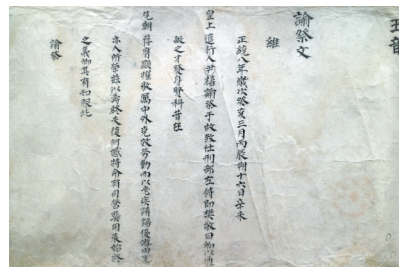 玉音
諭祭文
維
正統八年歲次癸亥三月丙辰朔十六日辛未
皇上遣行人 諭祭于故致仕刑部左侍郎樊敬曰爾以通
敏之才發身賢科昔在
先朝荐膺顯擢敭歷中外克效勞勩而以老疾請歸優游田里
亦人所榮茲以壽終夫復何憾特命有司營葬用表始終
之義爾其有知服此
諭祭